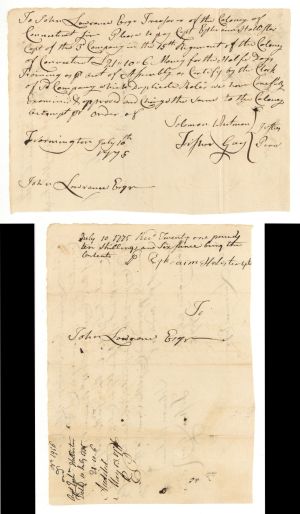 To John Lawrance Esqr Treasurer of the Colony of
Connecticut Sir Please to pay Capt Ephraim Hollister
Capt of the 3d Company in the 15th Regiment of the Colony
of Connecticut £21=10=6 Money for the Half Days
Training Pr act of Assembly as Certify'd by the Clerk
of sd Company which Duplicate Rolls we have Carefully
Examined & approved and Charge the Same to the Colony
accompt Pr order of
Solomon Whitman
Jestice
Farmington July 10th
1775
Jothm Gay
Peace
John Lawrance Esqr
July 10 1775 Recd Twenty one pounds
ten Shillings and Six pence being the
Contents
Pr Ephraim Hollister Capt
To
John Lawrance Esqr
July 1775
21 10 6
May 1776